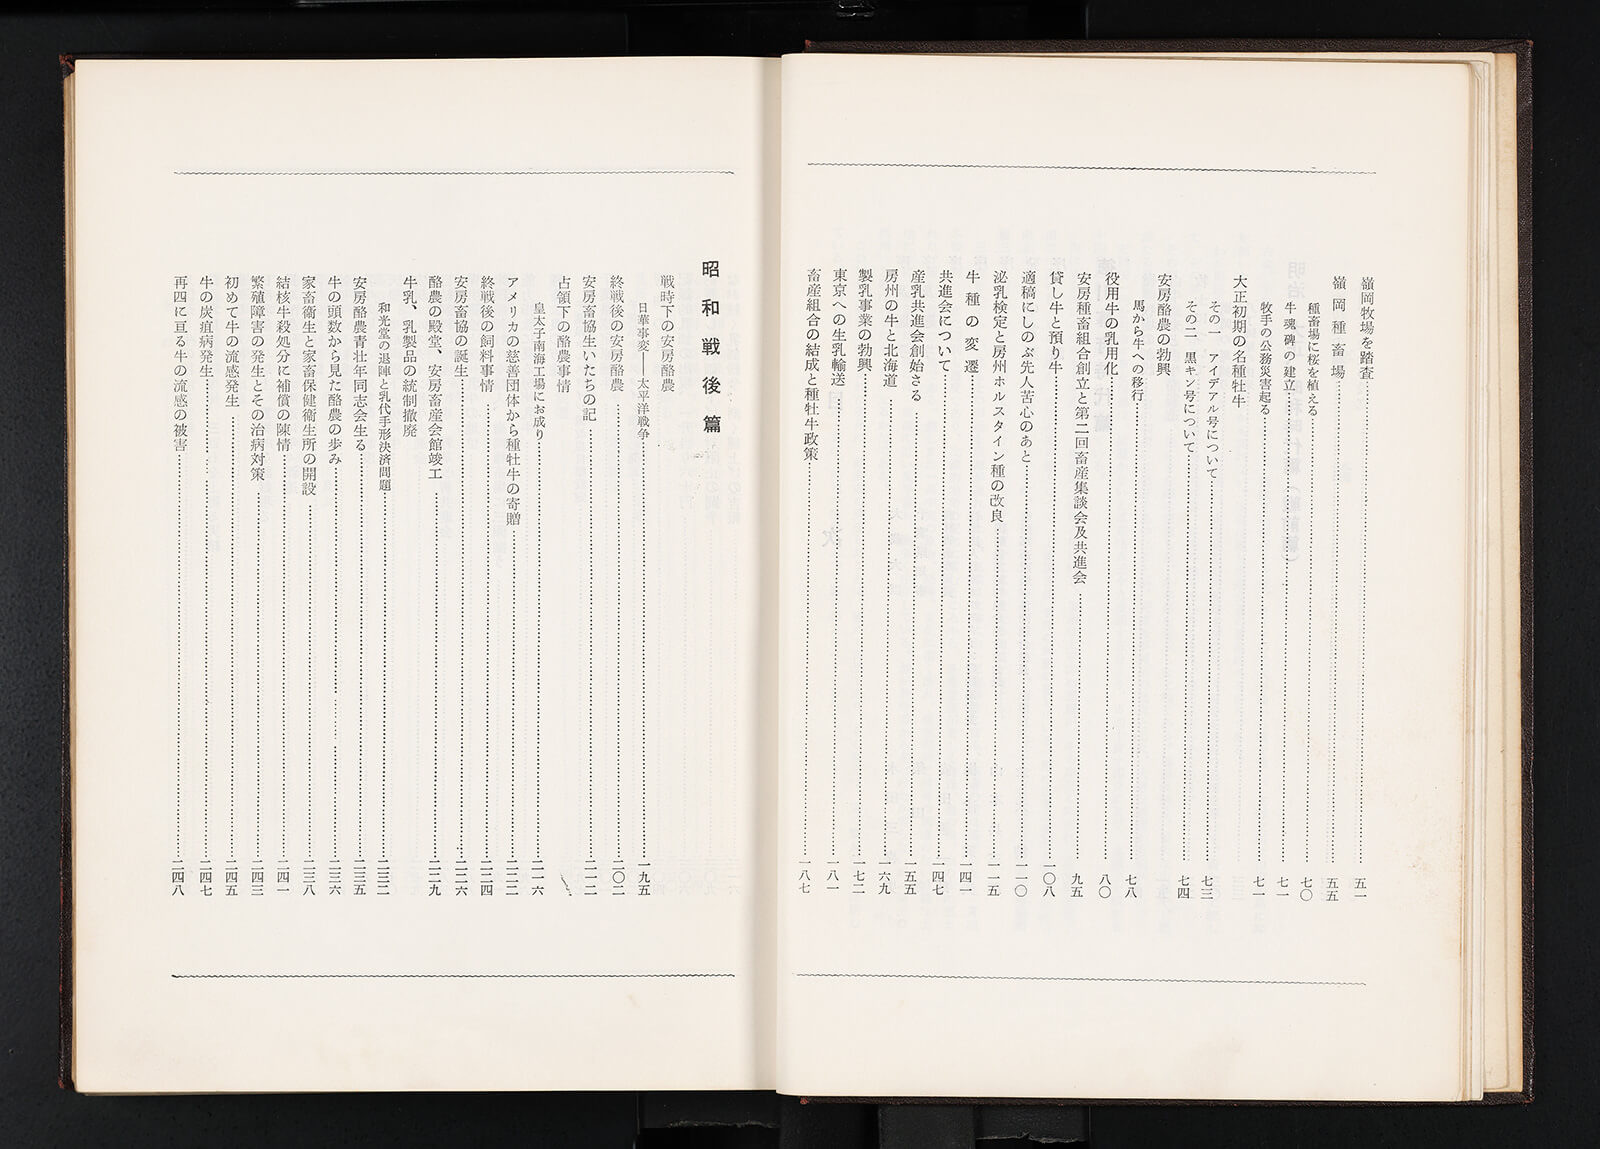 嶺岡牧場を踏査……五一
嶺岡種畜場……五五
種畜場に桜を植える……七〇
牛魂碑の建立……七一
牧手の公務災害起る……七一
大正初期の名種牡牛
その一　アイデアル号について……七三
その二　黒キン号について……七四
安房酪農の勃興
馬から牛への移行……七八
役用牛の乳用化……八〇
安房種畜組合創立と第二回畜産集談会及共進会……九五
貸し牛と預り牛……一〇八
適稿にしのぶ先人苦心のあと……一一〇
泌乳検定と房州ホルスタイン種の改良……一一五
牛種の変遷……一四一
共進会について……一四七
産乳共進会創始さる……一五五
房州の牛と北海道……一六九
製乳事業の勃興……一七二
東京への生乳輸送……一八一
畜産組合の結成と種牡牛政策……一八七
昭和戦後篇
戦時下の安房酪農
日華事変――太平洋戦争……一九五
終戦後の安房酪農……二〇二
安房畜協生いたちの記……二一二
占領下の酪農事情
皇太子南海工場にお成り……二一六
アメリカの慈善団体から種牡牛の寄贈……二二二
終戦後の飼料事情……二二四
安房畜協の誕生……二二六
酪農の殿堂、安房畜産会館竣工……二二九
牛乳、乳製品の統制撤廃
和光堂の退陣と乳代手形決済問題……二三二
安房酪農青壮年同志会生る……二三五
牛の頭数から見た酪農の歩み……二三六
家畜衛生と家畜保健衛生所の開設……二三八
結核牛殺処分に補償の陳情……二四一
繁殖障害の発生とその治病対策……二四三
初めて牛の流感発生……二四五
牛の炭疽病発生……二四七
再四に亘る牛の流感の被害……二四八